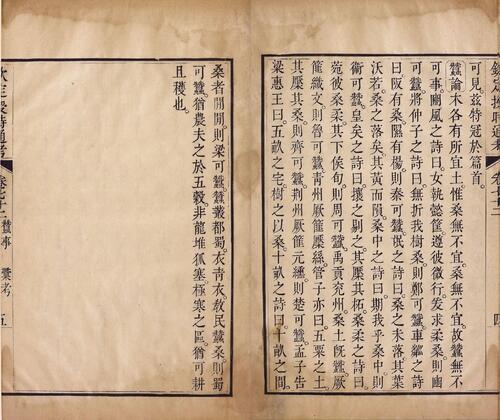 欽定授時通考 卷七十二 四
可見。茲特冠於篇首。
蠶論木各有所宜土。惟桑無不宜。桑無不宜。故蠶無不
可事。豳風之詩曰。女執懿筐。遵彼微行。爰求柔桑。則豳
可蠶。將仲子之詩曰。無折我樹桑。則鄭可蠶。車鄰之詩
曰。阪有桑。隰有楊。則秦可蠶。氓之詩曰。桑之未落。其葉
沃若。桑之落矣。其黃而隕。桑中之詩曰。期我乎桑中。則
衞可蠶。皇矣之詩曰。攘之剔之。其檿其柘。桑柔之詩曰。
菀彼桑柔。其下侯旬。則周可蠶。禹貢兗州。桑土旣蠶。厥
篚織文。則魯可蠶。青州厥篚檿絲。管子亦曰。五粟之土。
其檿其桑。則齊可蠶。荆州厥篚元纁。則楚可蠶。孟子告
梁惠王曰。五畝之宅。樹之以桑。十畝之詩曰。十畝之間。
桑者閑閑。則梁可蠶。蠶叢都蜀。衣青衣。敎民蠶桑。則蜀
可蠶。猶農夫之於五穀。非龍堆狐塞極寒之區。猶可耕
且穫也。
欽定授時通考 卷七十二 蠶事 考 五